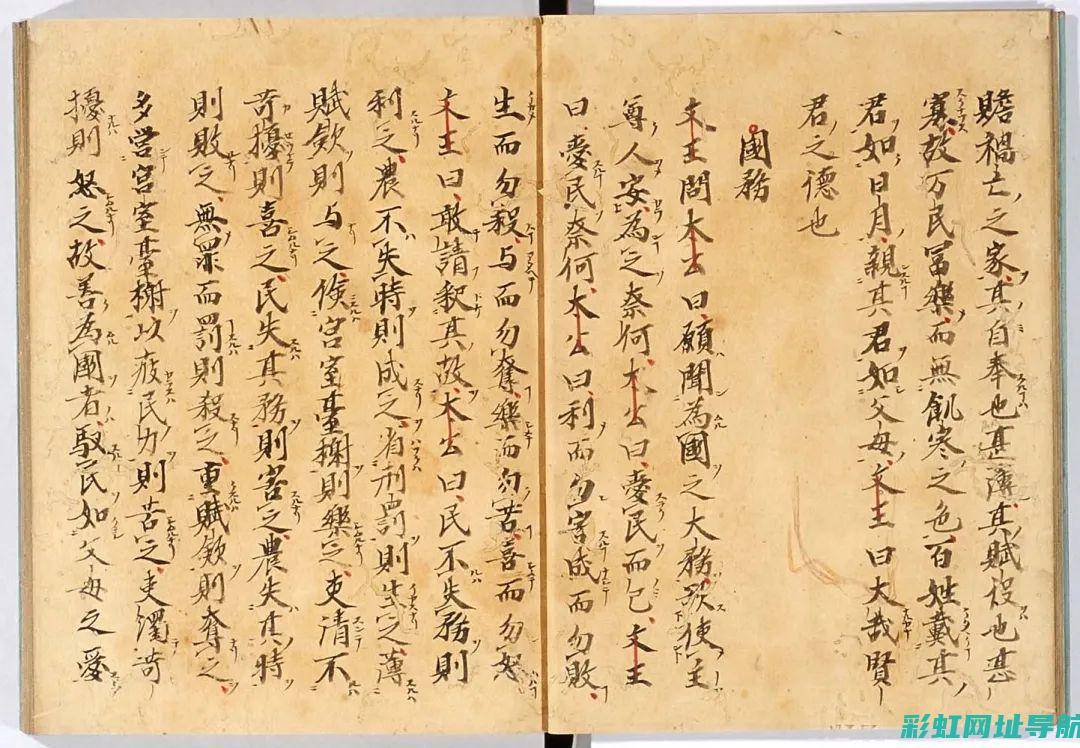 贍禍亡之家其自奉也甚薄其賦役也甚
寡故万民冨樂而無飢寒之色百姓戴其
君如日月親其君如父母文王曰大哉賢
君之德也
國務
文王問太公曰願聞為國之大務欲使主
尊人安為之奈何太公曰愛民而已文王
曰愛民奈何太公曰利而勿害成而勿敗
生而勿殺与而勿奪樂而勿苦喜而勿怒
文王曰敢請釈其故太公曰民不失務則
利之農不失時則成之省刑罰則生之薄
賦歛則与之儉宮室臺榭則樂之吏清不
苛擾則喜之民失其務則害之農失其時
則敗之無罪而罰則殺之重賦歛則奪之
多営宮室臺榭以疲民力則苦之吏濁苛
擾則怒之故善為國者馭民如父母之愛
彩虹网址导航